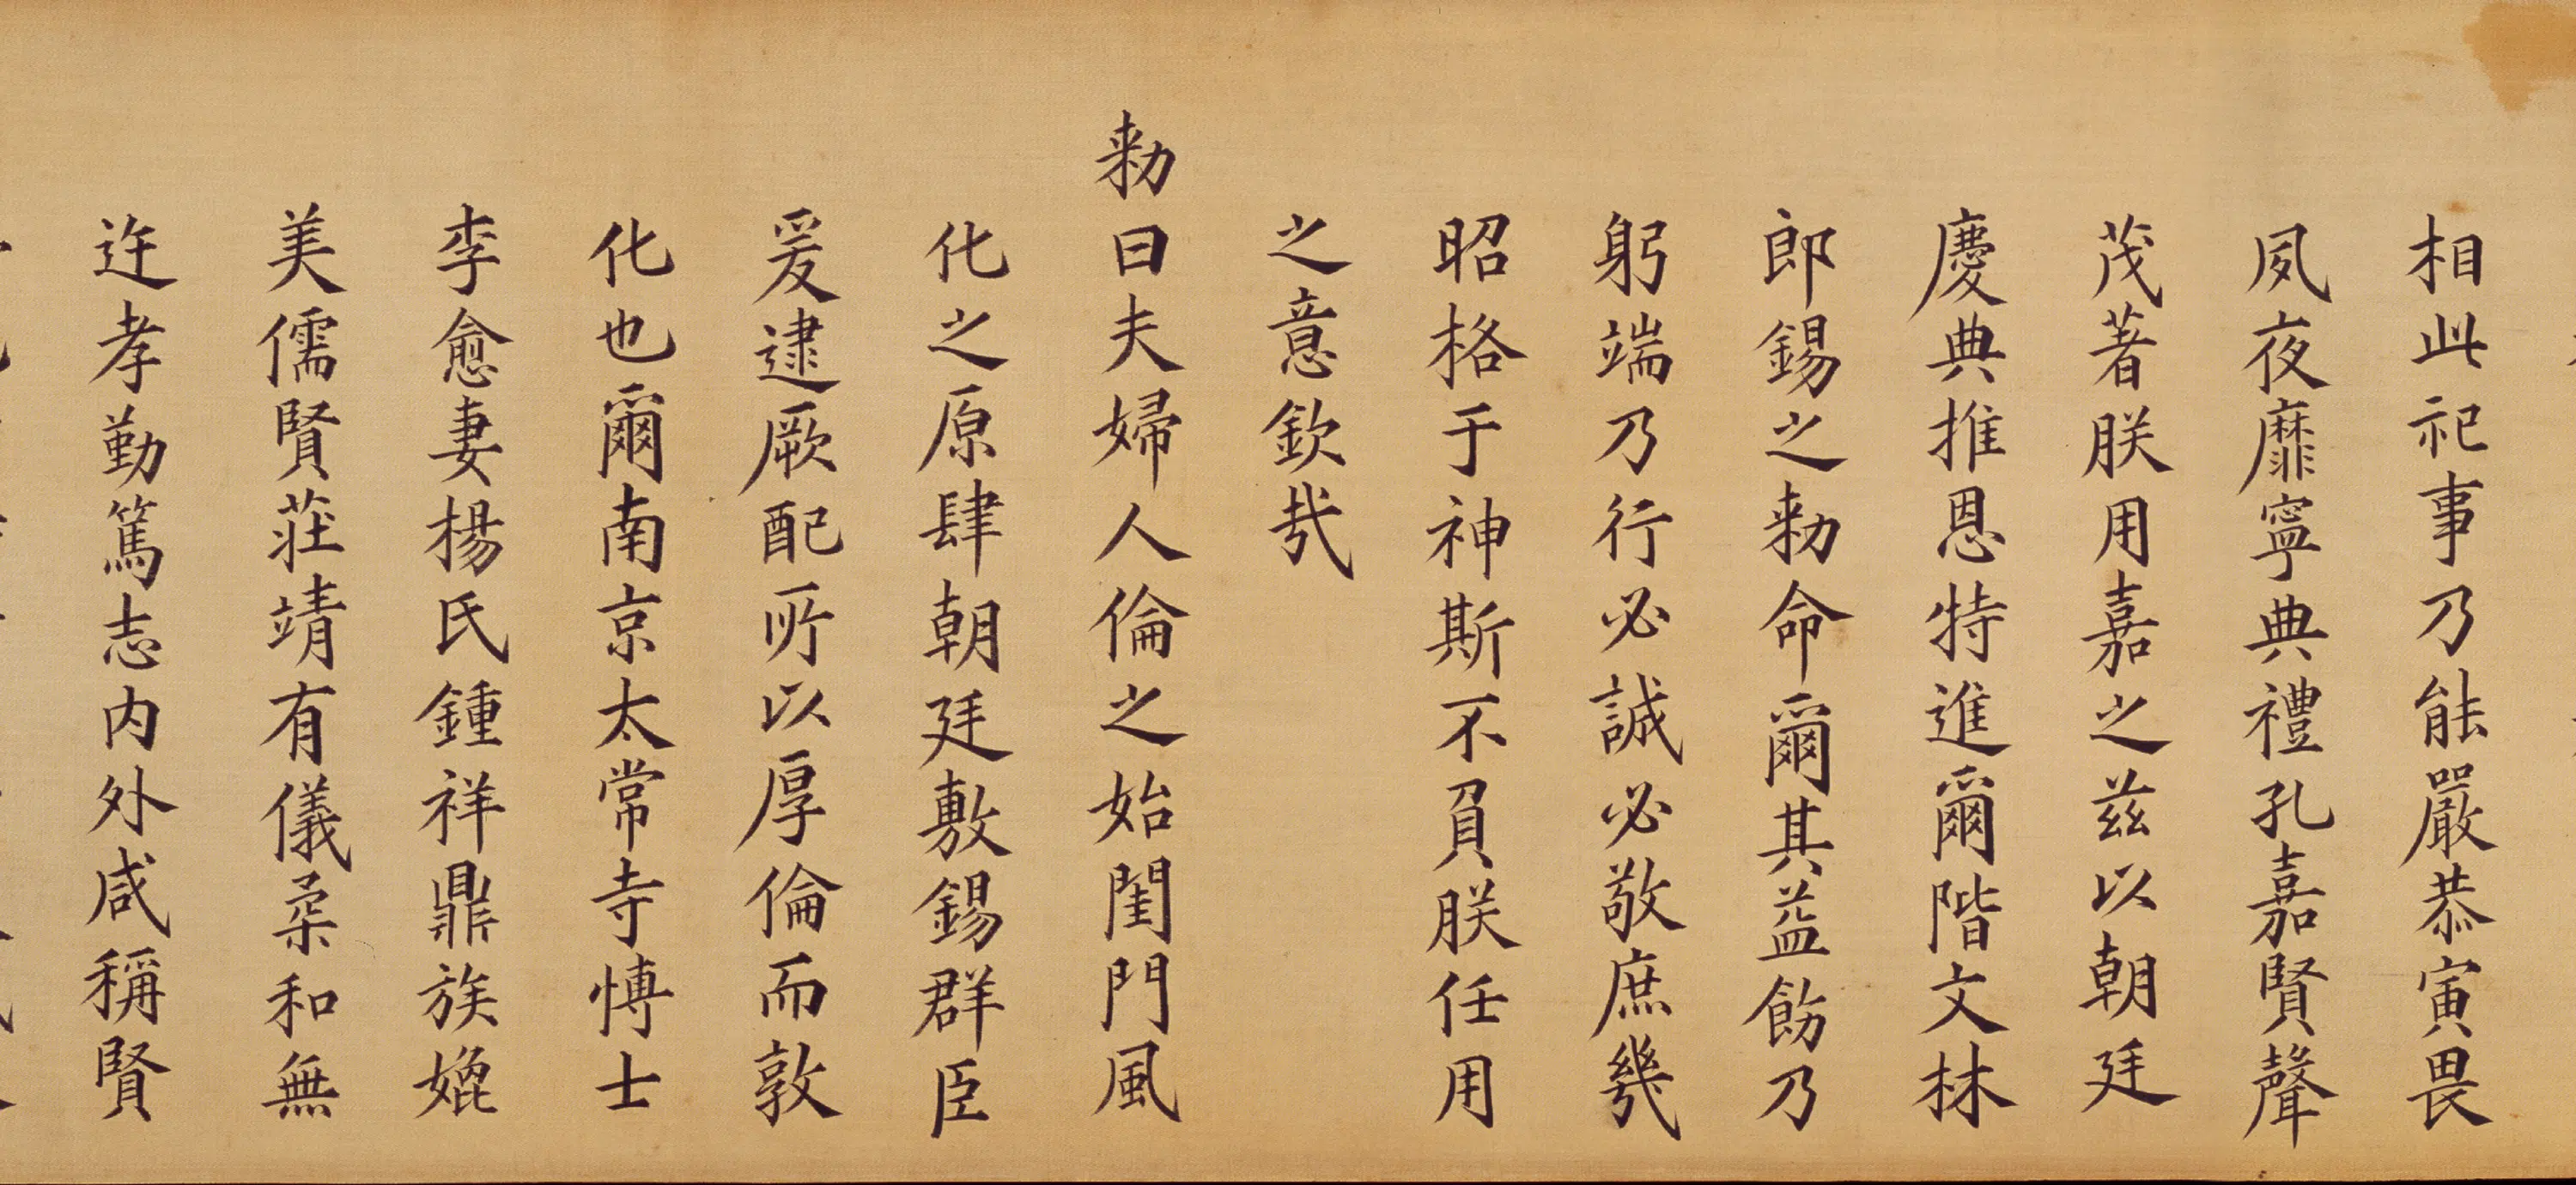 相此祀事乃能嚴恭寅畏
夙夜靡寧典禮孔嘉賢聲
茂著朕用嘉之茲以朝廷
慶典推恩特進爾階文林
郎錫之勑命爾其益飭乃
躬端乃行必誠必敬庶幾
昭格于神斯不負朕任用
之意欽哉
勑曰夫婦人倫之始閨門風
化之原肆朝廷敷錫群臣
爰逮厥配所以厚倫而敦
化也爾南京太常寺博士
李愈妻楊氏鍾祥鼎族媲
美儒賢莊靖有儀柔和無
迕孝勤篤志内外咸稱賢